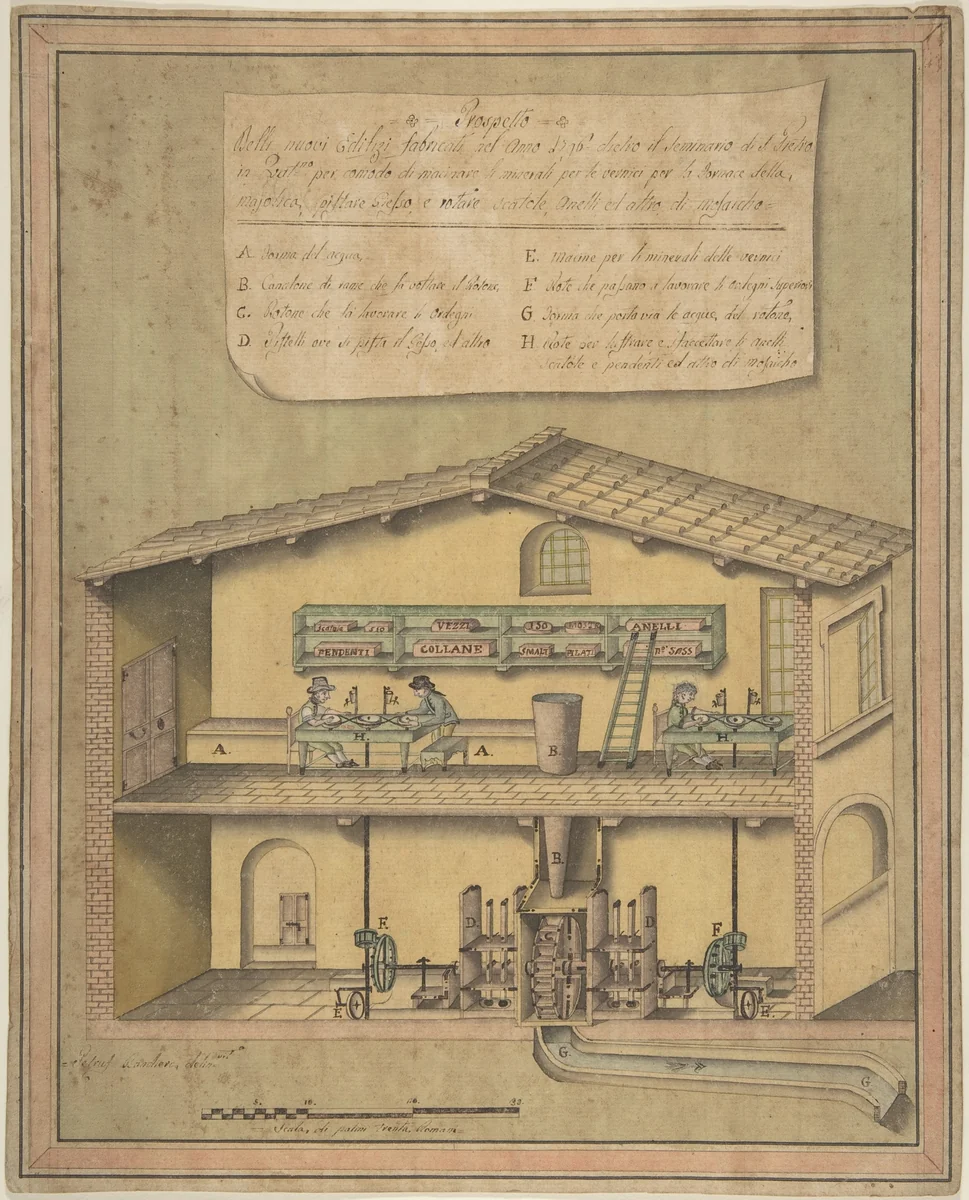 Prospetto
Delli nuovi Edilizi fabricati nel Anno dietro il Seminario di S. Pietro
in per comodo di macinare li minerali per le vernici per la Fornace della
majolica, pistare Gesso, e rotare scatole, anelli ed altro di mosaicho=
A. Forma del acqua,
B. Canalone di rame che fà voltare il Rotone,
C. Rotone che fà lavorare li Ordegni
D. Pistelli ove si pista il Gesso, ed altro
E. Macine per li minerali delle vernici
F. Rote che passano a lavorare li ordegni superiori
G. Forma che porta via le acque, del rotone,
H. Rote per lustrare e sfaccettare li anelli
scatole e pendenti ed altro di mosaicho
Scatole
VEZZI
ANELLI
PENDENTI
COLLANE
SMALTI
PILATI
H.
A.
A.
B.
H.
B.
D
D
F.
F
E
E.
G.
G.
5.
10.
Scala, di palmi Trenta, Romani=